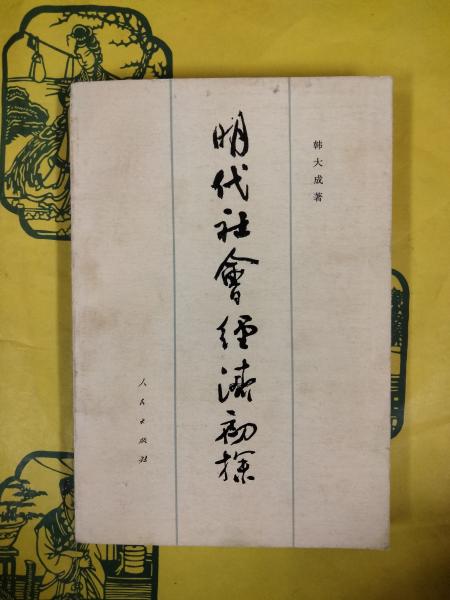 韩大成著
明代社會經濟初探
人民出版社